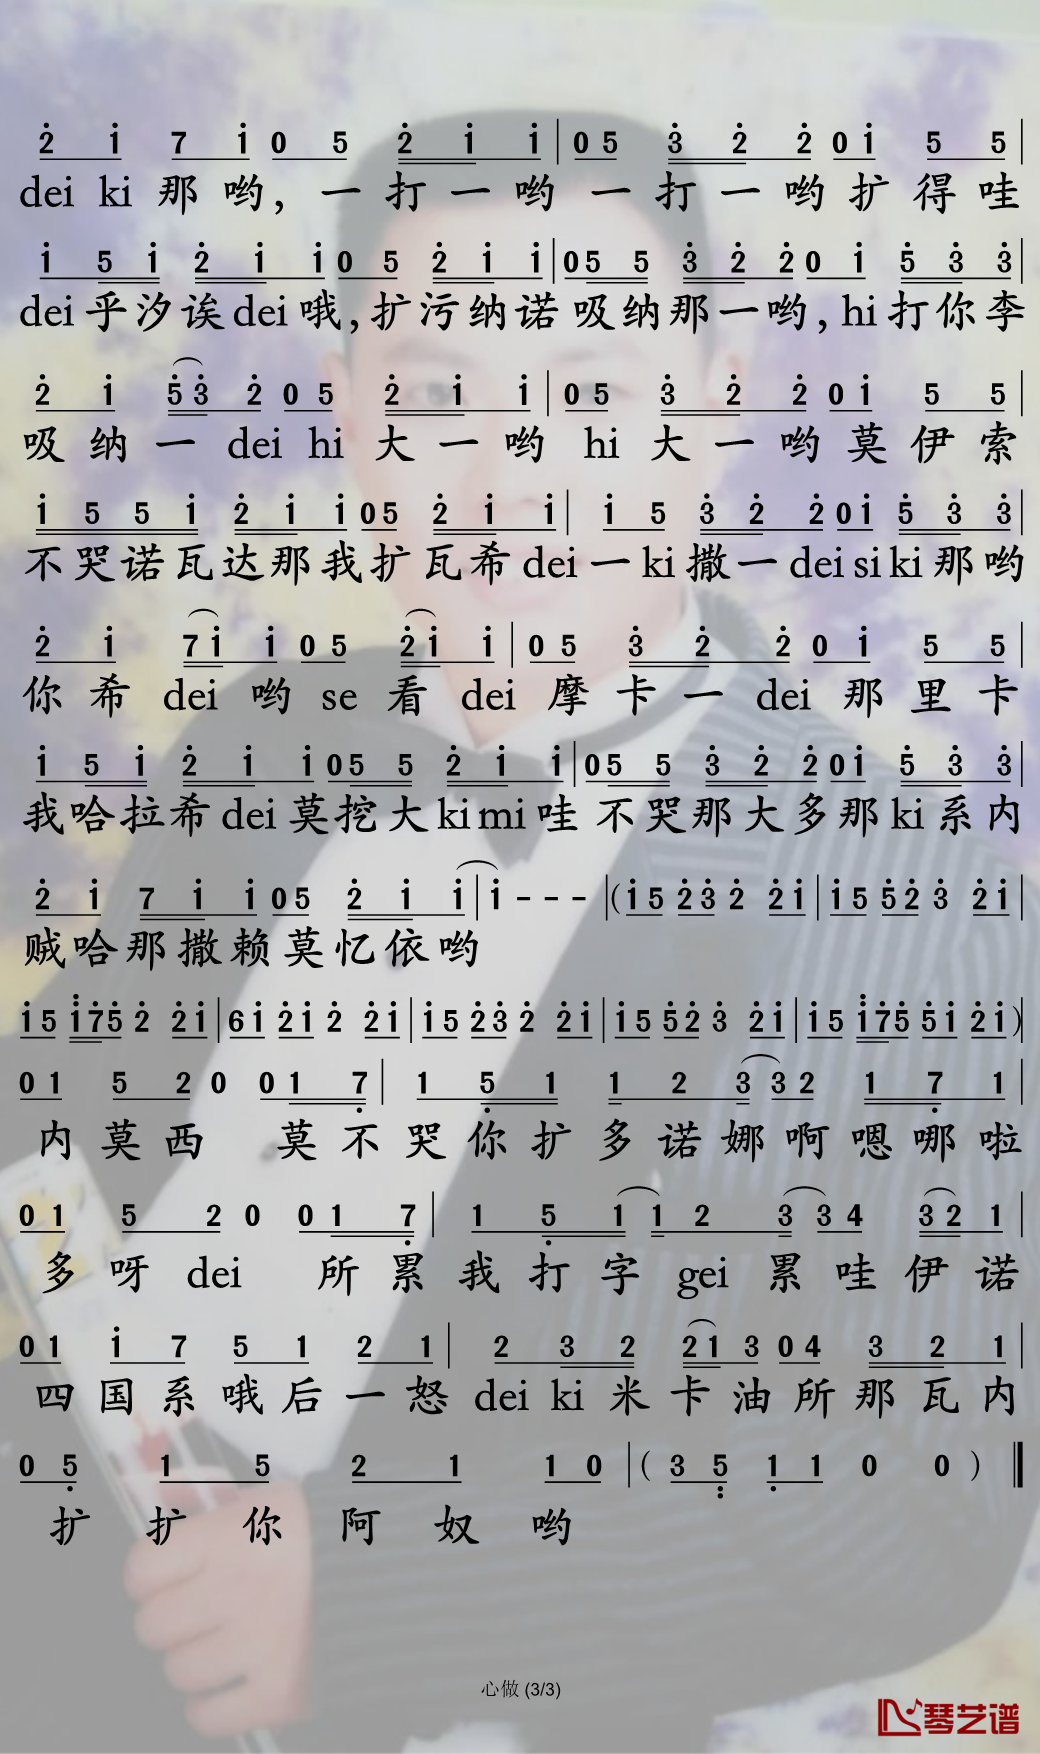 2 1 7 1 0 5 2 1 1 | 0 5 3 2 2 0 1 5 5 |
dei ki 那 哟, 一 打 一 哟 一 打 一 哟 扩 得 哇
1 5 1 2 1 1 0 5 2 1 1 | 0 5 5 3 2 2 0 1 5 3 3 |
dei 乎 汐 诶 dei 哦, 扩 污 纳 诺 吸 纳 那 一 哟, hi 打 你 李
2 1 5 3 2 0 5 2 1 1 | 0 5 3 2 2 0 1 5 5 |
吸 纳 一 dei hi 大 一 哟 hi 大 一 哟 莫 伊 索
1 5 5 1 2 1 1 0 5 2 1 1 | 1 5 3 2 2 0 1 5 3 3 |
不 哭 诺 瓦 达 那 我 扩 瓦 希 dei 一 ki 撒 一 dei si ki 那 哟
2 1 7 1 1 0 5 2 1 1 | 0 5 3 2 2 0 1 5 5 |
你 希 dei 哟 se 看 dei 摩 卡 一 dei 那 里 卡
1 5 1 2 1 1 0 5 5 2 1 1 | 0 5 5 3 2 2 0 1 5 3 3 |
我 哈 拉 希 dei 莫 挖 大 ki mi 哇 不 哭 那 大 多 那 ki 系 内
2 1 7 1 1 0 5 2 1 1 | 1 - - - | ( 1 5 2 3 2 2 1 | 1 5 5 2 3 2 1 |
贼 哈 那 撒 赖 莫 忆 依 哟
1 5 1 7 5 2 2 1 | 6 1 2 1 2 2 1 | 1 5 2 3 2 2 1 | 1 5 5 2 3 2 1 | 1 5 1 7 5 5 1 2 1 ) |
0 1 5 2 0 0 1 7 | 1 5 1 1 2 3 3 2 1 7 1 |
内 莫 西 莫 不 哭 你 扩 多 诺 娜 啊 嗯 哪 啦
0 1 5 2 0 0 1 7 | 1 5 1 1 2 3 3 4 3 2 1 |
多 呀 dei 所 累 我 打 字 gei 累 哇 伊 诺
0 1 1 7 5 1 2 1 | 2 3 2 2 1 3 0 4 3 2 1 |
四 国 系 哦 后 一 怒 dei ki 米 卡 油 所 那 瓦 内
0 5 1 5 2 1 1 0 | ( 3 5 1 1 0 0 ) ‖
扩 扩 你 阿 奴 哟
心做 (3/3)
琴艺谱